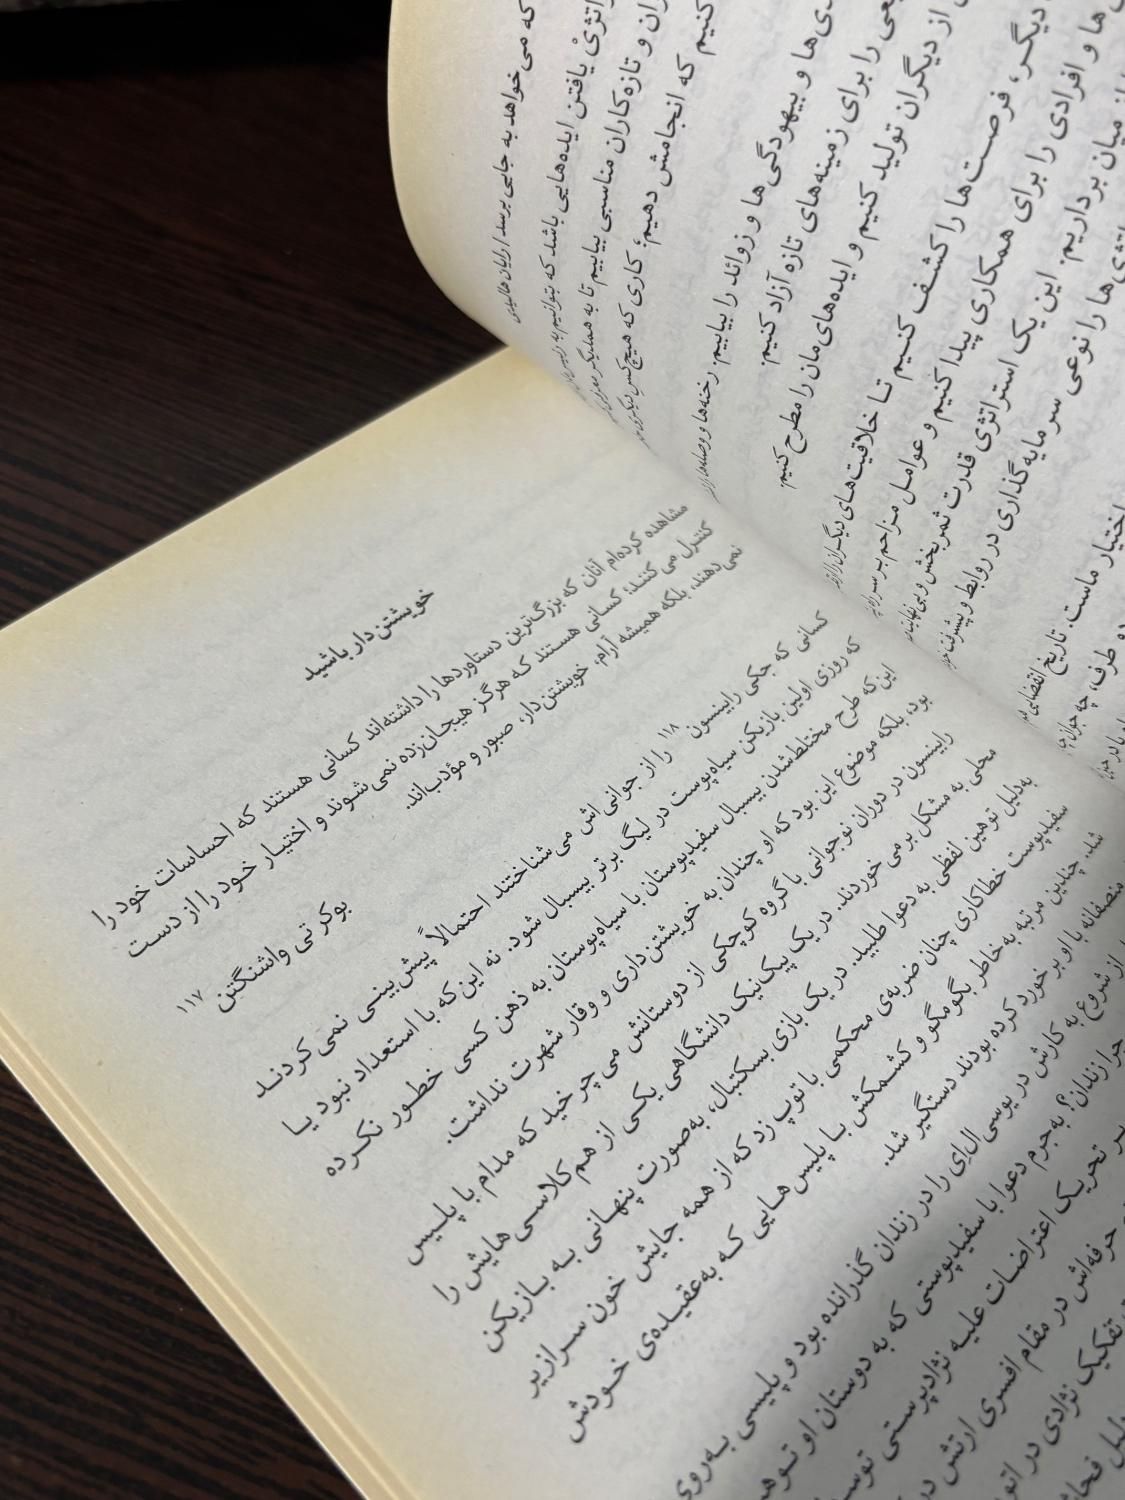 که می‌خواهد به جایی برسد / رایان هالیدی
انرژیِ یافتن ایده‌هایی باشد که بتوانیم به
ران و تازه‌کاران مناسبی بیابیم تا به همدیگر معرفی
کنیم که انجامش دهیم؛ کاری که هیچ‌کس دیگری
دی‌ها و بیهودگی‌ها و زوائد را بیابیم. رخنه‌ها و وصله‌ها را
را برای زمینه‌های تازه آزاد کنیم.
از دیگران تولید کنیم و ایده‌های‌مان را مطرح کنیم.
دیگر، فرصت‌ها را کشف کنیم تا خلاقیت‌های دیگران را
ها و افرادی را برای همکاری پیدا کنیم و عوامل مزاحم بر سر راه
از میان برداریم. این یک استراتژی قدرت ثمربخش و بی‌نهایت
ها را نوعی سرمایه‌گذاری در روابط و پیشرفت
اختیار ماست. تاریخ انقضایی
دو طرف، چه
خویشتن‌دار باشید
مشاهده کرده‌ام آنان که بزرگ‌ترین دستاوردها را داشته‌اند کسانی هستند که احساسات خود را
کنترل می‌کنند؛ کسانی هستند که هرگز هیجان‌زده نمی‌شوند و اختیار خود را از دست
نمی‌دهند، بلکه همیشه آرام، خویشتن‌دار، صبور و مؤدب‌اند.
بوکر تی واشنگتن ۱۱۷
کسانی که جکی رابینسون ۱۱۸ را از جوانی‌اش می‌شناختند احتمالاً پیش‌بینی نمی‌کردند
که روزی اولین بازیکن سیاه‌پوست در لیگ برتر بیسبال شود. نه این‌که با استعداد نبود یا
این‌که طرح مختلط‌شدن بیسبال سفیدپوستان با سیاه‌پوستان به ذهن کسی خطور نکرده
بود، بلکه موضوع این بود که او چندان به خویشتن‌داری و وقار شهرت نداشت.
رابینسون در دوران نوجوانی با گروه کوچکی از دوستانش می‌چرخید که مدام با پلیس
محلی به مشکل برمی‌خوردند. در یک پیک‌نیک دانشگاهی یکی از هم‌کلاسی‌هایش را
به‌دلیل توهین لفظی به دعوا طلبید. در یک بازی بسکتبال، به‌صورت پنهانی به بازیکن
سفیدپوست خطاکاری چنان ضربه‌ی محکمی با توپ زد که از همه جایش خون سرازیر
شد. چندین مرتبه به‌خاطر بگومگو و کشمکش با پلیس‌هایی که به‌عقیده‌ی خودش
منصفانه با او برخورد کرده بودند دستگیر شد.
از شروع به کارش در یوسی‌ال‌اِی را در زندان گذرانده بود و پلیسی به‌روی
چرا زندان؟ به‌جرم دعوا با سفیدپوستی که به دوستان او
تحریک اعتراضات علیه نژادپرستی
حرفه‌اش در مقام افسری ارتش
تفکیک نژادی در